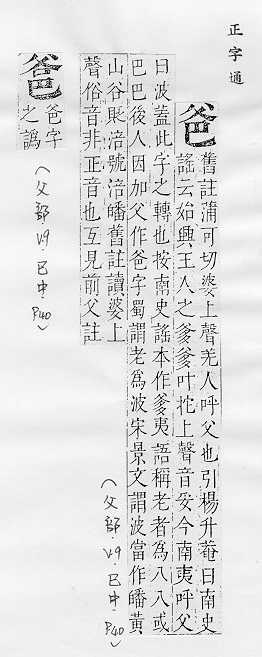 正字通
爸 舊註蒲可切婆上聲羌人呼父也引楊升菴曰南史
謠云始興王人之爹爹叶拕上聲音妥今南夷呼父
曰波蓋此字之轉也按南史謠本作爹夷語稱老者為八八或
巴巴後人因加父作爸字蜀謂老為波宋景文謂波當作皤黃
山谷貶涪號涪皤舊註讀婆上
聲俗音非正音也互見前父註
(父部.V9.巳中.P40)
爸字
之譌
(父部 V9.巳中.P40)